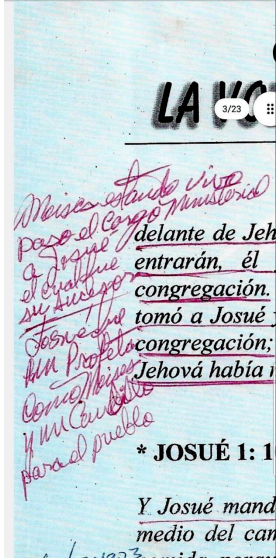 LA VO
3/23
Moises estando vivo
paso el Cargo Ministerial
a Josue
el cual fue
su sucesor
Josue fue
Aun Profeta
Como Moises
y un Caudillo
para el pueblo
delante de Jeh
entrarán, él
congregación.
tomó a Josué
congregación;
Jehová había
* JOSUÉ 1: 1
Y Josué mand
medio del can
comida, porque